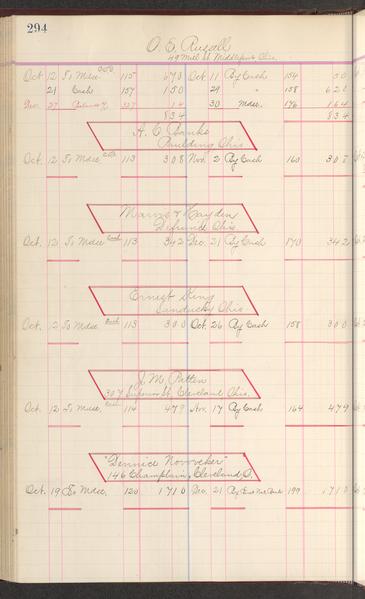 294
O. E. Russell
49 Mill St. Middleport, Ohio.
Oct 12 To Mdse 115 670 Oct 11 By Cash 154 50
21 Cash 157 150 29 " 158 620
Nov. 27 14 30 Mdse. 176 164
834 834
A. C. Banks
Paulding Ohio
Oct. 12 To Mdse COD 113 308 Nov. 2 By Cash 160 308
Hayden
Defiance Ohio
Oct. 12 To Mdse Cash 113 342 Dec. 21 By Cash 170 342
Ernest King
Sandusky Ohio
Oct. 12 To Mdse Cash 113 300 Oct. 26 By Cash 158 300
J. M. Patten
307 Superior St. Cleveland Ohio.
Oct. 12 To Mdse. Cash 114 479 Nov. 17 By Cash 164 479
146 Champlain, Cleveland O.
Oct. 19 To Mdse. 120 1710 Dec. 21 199 1710